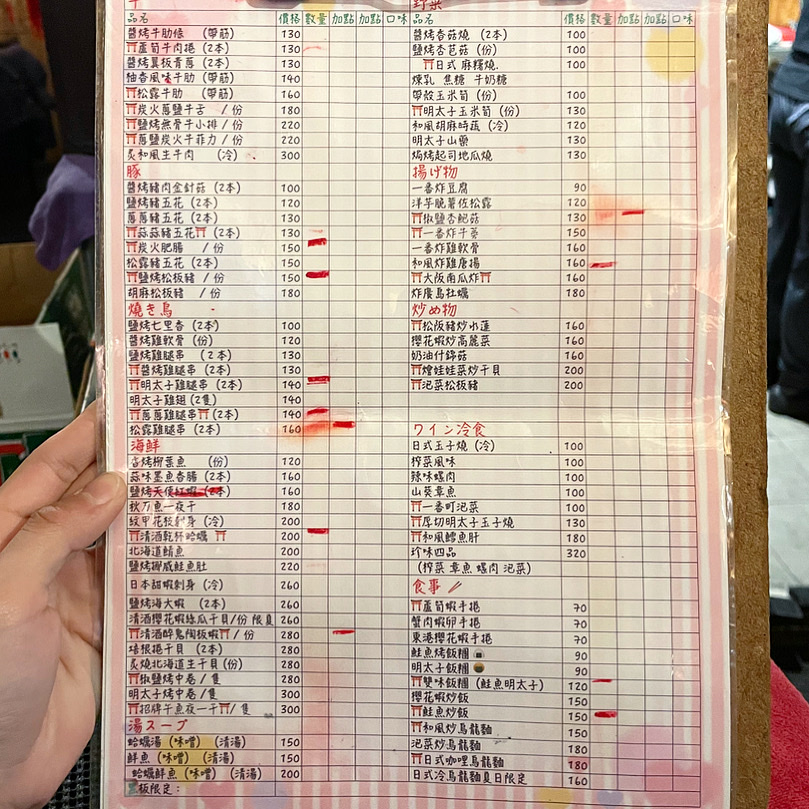 牛
品名 價格 數量 加點 加點 口味
醬烤牛肋條 (帶筋) 130
⛩蘆筍牛肉捲 (2本) 130
醬烤翼板青蔥 (2本) 130
柚香風味牛肋 (帶筋) 140
⛩松露牛肋 (帶筋) 160
⛩炭火蔥鹽牛舌 /份 180
⛩鹽烤無骨牛小排 /份 220
⛩蔥鹽炭火牛菲力 /份 220
炙和風生牛肉 (冷) 300
豚
醬烤豬肉金針菇 (2本) 100
鹽烤豬五花 (2本) 120
蔥蔥豬五花 (2本) 130
⛩蒜蒜豬五花⛩ (2本) 130
⛩炭火肥腸 /份 150
松露豬五花 (2本) 150
⛩鹽烤松板豬 /份 150
胡麻松板豬 /份 180
燒き鳥
鹽烤七里香 (2本) 100
醬烤雞軟骨 (份) 120
鹽烤雞腿串 (2本) 130
⛩醬烤雞腿串 (2本) 130
⛩明太子雞腿串 (2本) 140
明太子雞翅 (2隻) 140
⛩蔥蔥雞腿串⛩ (2本) 140
松露雞腿串 (2本) 160
海鮮
香烤柳葉魚 (份) 120
蒜味墨魚香腸 (2本) 160
鹽烤天使紅蝦 (2本) 160
秋刀魚一夜干 180
紋甲花枝刺身 (冷) 200
⛩清酒乾杯蛤蠣 ⛩ 200
北海道鯖魚 200
鹽烤挪威鮭魚肚 220
日本甜蝦刺身 (冷) 260
鹽烤海大蝦 (2本) 260
清酒櫻花蝦絲瓜干貝/份 限頁 260
⛩清酒醉鬼陶板蝦⛩ /份 280
培根捲干貝 (2本) 280
炙燒北海道生干貝 (份) 280
⛩椒鹽烤中卷 /隻 280
明太子烤中卷 /隻 300
⛩招牌午魚一夜干⛩ /隻 300
湯スープ
蛤蠣湯 (味噌) (清湯) 150
鮮魚 (味噌) (清湯) 150
蛤蠣鮮魚 (味噌) (清湯) 200
黑板限定：
野菜
品名 價格 數量 加點 加點 口味
醬烤香菇燒 (2本) 100
鹽烤杏苞菇 (份) 100
⛩日式麻糬燒. 100
煉乳 焦糖 牛奶糖
帶殼玉米筍 (份) 100
⛩明太子玉米筍 (份) 130
和風胡麻時蔬 (冷) 120
明太子山藥 130
焗烤起司地瓜燒 130
揚げ物
一番炸豆腐 90
洋芋脆薯佐松露 120
⛩椒鹽杏鮑菇 130
⛩一番炸牛蒡 150
一番炸雞軟骨 160
和風炸雞唐揚 160
⛩大阪南瓜炸⛩ 160
炸廣島牡蠣 180
炒め物
⛩松阪豬炒水蓮 160
櫻花蝦炒高麗菜 160
奶油什錦菇 160
⛩燴娃娃菜炒干貝 200
⛩泡菜松板豬 200
ワイン冷食
日式玉子燒 (冷) 100
榨菜風味 100
辣味螺肉 100
山葵章魚 100
⛩一番町泡菜 100
⛩厚切明太子玉子燒 130
⛩和風鱈魚肝 180
珍味四品 320
(榨菜 章魚 螺肉 泡菜)
食事
⛩蘆筍蝦手捲 70
蟹肉蝦卵手捲 70
東港櫻花蝦手捲 70
鮭魚烤飯糰 90
明太子飯糰 90
⛩雙味飯糰 (鮭魚明太子) 120
櫻花蝦炒飯 150
⛩鮭魚炒飯 150
⛩和風炒烏龍麵 150
泡菜炒烏龍麵 180
⛩日式咖哩烏龍麵 180
日式冷烏龍麵夏日限定 160